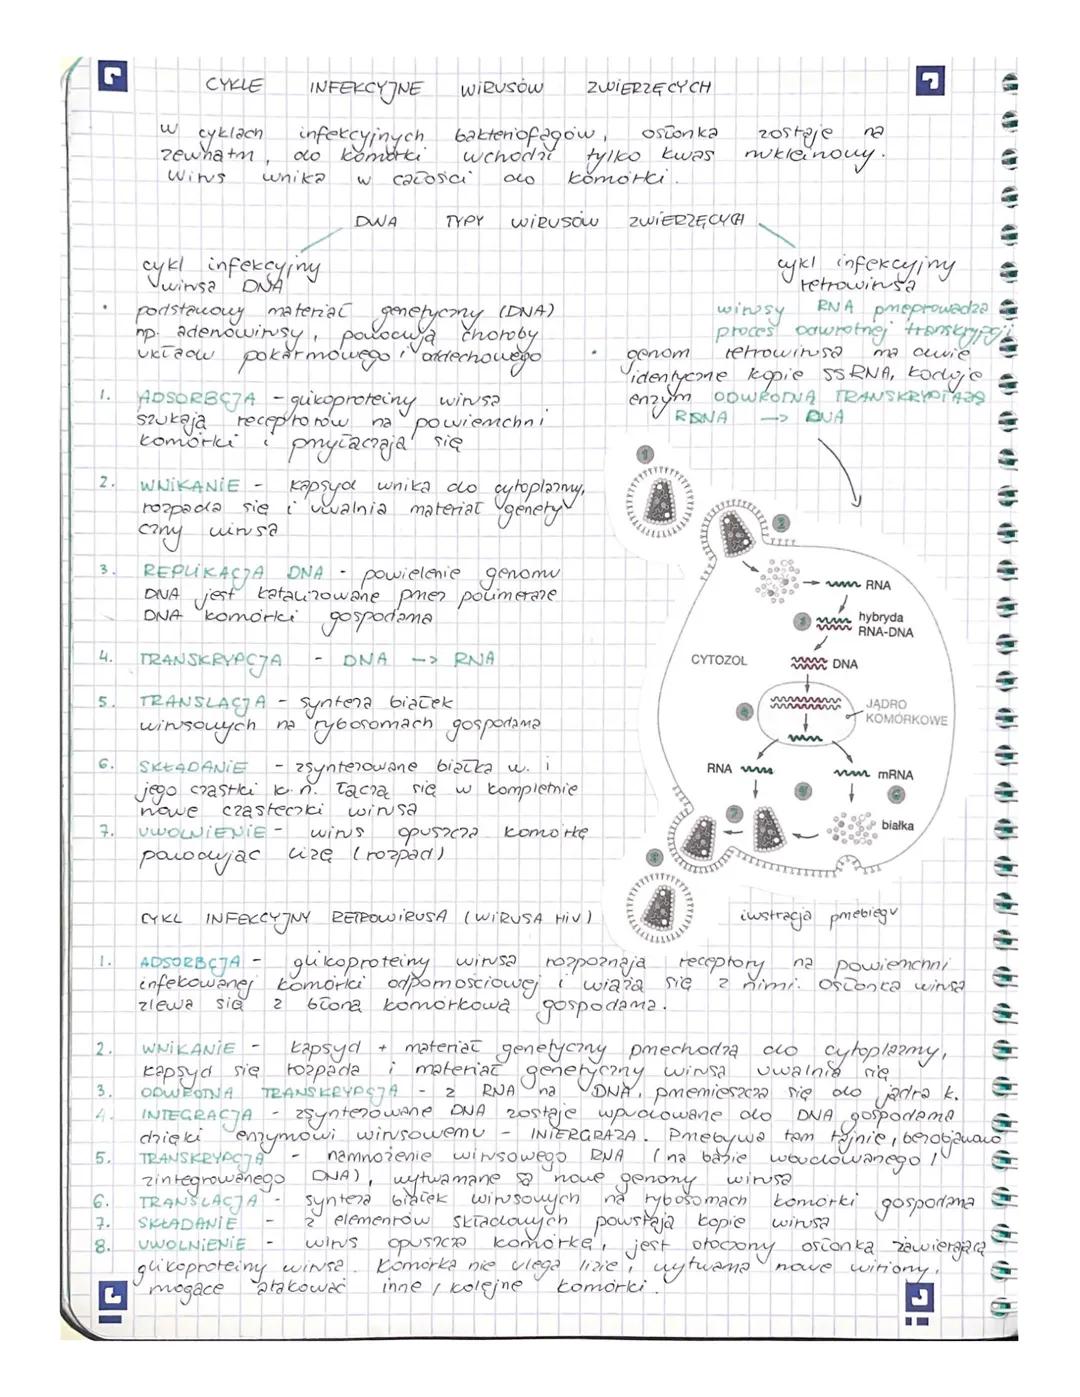 CYKLE INFEKCYJNE WIRUSÓW ZWIERZĘCYCH
w cyklach infekcyjnych bakteriofagów, osłonka zostaje na
zewnątrz, do komórki wchodzi tylko kwas nukleinowy.
Wirus wnika w całości do komórki.
DWA TYPY WIRUSÓW ZWIERZĘCYCH
cykl infekcyjny
wirusa DNA
podstawowy materiał genetyczny (DNA)
np. adenowirusy, powodują choroby
układu pokarmowego i oddechowego
1. ADSORBCJA - glikoproteiny wirusa
szukają receptorów na powierzchni
komórki i przyłączają się
2. WNIKANIE - kapsyd wnika do cytoplazmy,
rozpada się i uwalnia materiał genety
czny wirusa
3. REPLIKACJA DNA - powielenie genomu
DNA jest katalizowane przez polimerazę
DNA komórki gospodarza
4. TRANSKRYPCJA - DNA --> RNA
5. TRANSLACJA - synteza białek
wirusowych na rybosomach gospodarza
6. SKŁADANIE - zsyntezowane białka w. i
jego cząstki k.n. łączą się w kompletnie
nowe cząsteczki wirusa
7. UWOLNIENIE - wirus opuszcza komórkę
powodując lizę (rozpad)
cykl infekcyjny
retrowirusa
wirusy RNA przeprowadza
proces odwrotnej transkrypcji
genom retrowirusa ma dwie
identyczne kopie ssRNA, koduje
enzym ODWROTNĄ TRANSKRYPTAZĘ
RNA --> DNA
1
2
RNA
3
hybryda
RNA-DNA
CYTOZOL
DNA
4
JĄDRO
KOMÓRKOWE
RNA
mRNA
5
6
7
białka
8
ilustracja przebiegu
CYKL INFEKCYJNY RETROWIRUSA (WIRUSA HIV)
1. ADSORBCJA - glikoproteiny wirusa rozpoznają receptory na powierzchni
infekowanej komórki odpornościowej i wiążą się z nimi. Osłonka wirusa
zlewa się z błoną komórkową gospodarza.
2. WNIKANIE - kapsyd + materiał genetyczny przechodzą do cytoplazmy,
kapsyd się rozpada i materiał genetyczny wirusa uwalnia się
3. ODWROTNA TRANSKRYPCJA - z RNA na DNA, przemieszcza się do jądra k.
4. INTEGRACJA - zsyntezowane DNA zostaje wbudowane do DNA gospodarza
dzięki enzymowi wirusowemu - INTERGRAZA. Przebywa tam tajnie, bezobjawowo
5. TRANSKRYPCJA - namnożenie wirusowego RNA (na bazie wbudowanego /
zintegrowanego DNA), wytwarzane są nowe genomy wirusa
6. TRANSLACJA - synteza białek wirusowych na rybosomach komórki gospodarza
7. SKŁADANIE - z elementów składowych powstają kopie wirusa
8. UWOLNIENIE - wirus opuszcza komórkę, jest otoczony osłonką zawierającą
glikoproteiny wirusa. Komórka nie ulega lizie, wytwarza nowe wiriony,
mogące atakować inne / kolejne komórki.